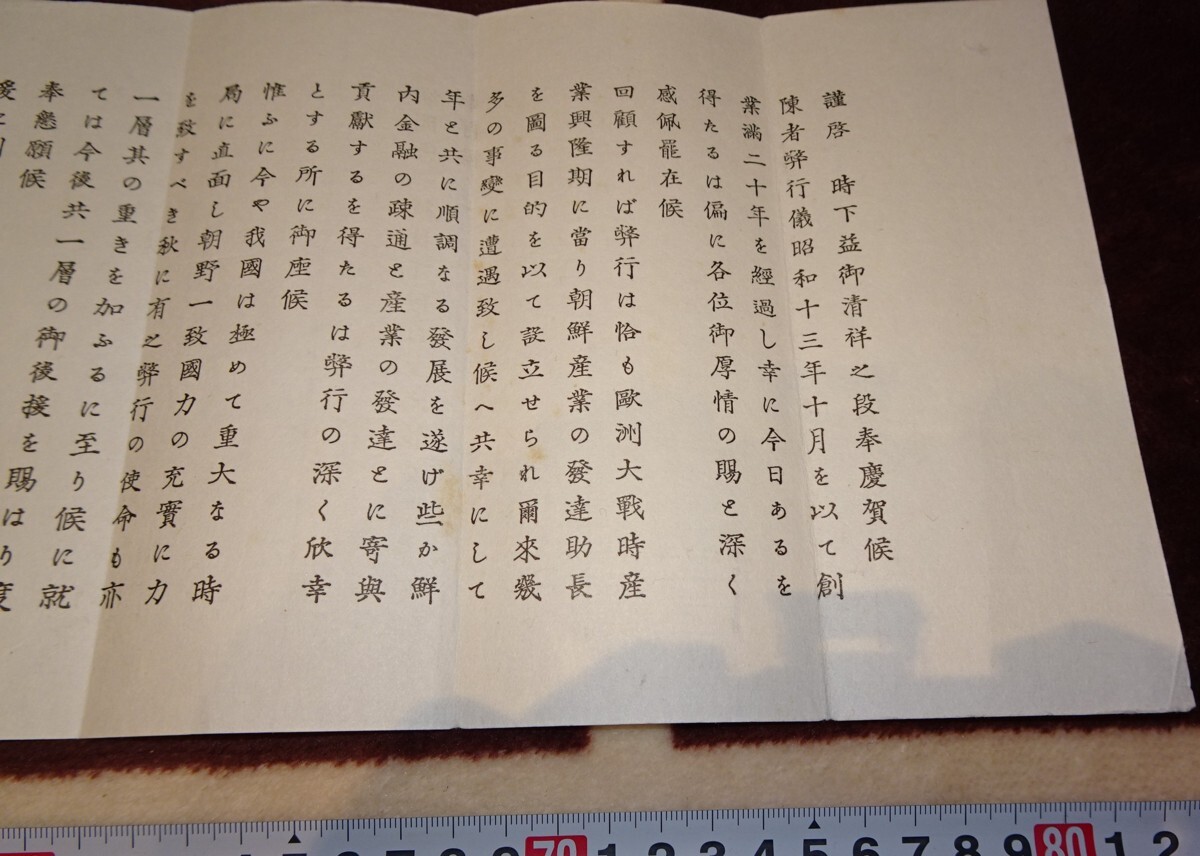 謹啓　時下益御淸祥之段奉慶賀候
陳者弊行儀昭和十三年十月を以て創
業滿二十年を經過し幸に今日あるを
得たるは偏に各位御厚情の賜と深く
感佩罷在候
回顧すれば弊行は恰も歐洲大戰時産
業興隆期に當り朝鮮産業の發達助長
を圖る目的を以て設立せられ爾來幾
多の事變に遭遇致し候へ共幸にして
年と共に順調なる發展を遂げ些か鮮
内金融の疎通と産業の發達とに寄與
貢獻するを得たるは弊行の深く欣幸
とする所に御座候
惟ふに今や我國は極めて重大なる時
局に直面し朝野一致國力の充實に力
を致すべき秋に有之弊行の使命も亦
一層其の重きを加ふるに至り候に就
ては今後共一層の御後援を賜はり度
奉懇願候
70 1 2 3 4 5 6 7 8 9 80 1 2